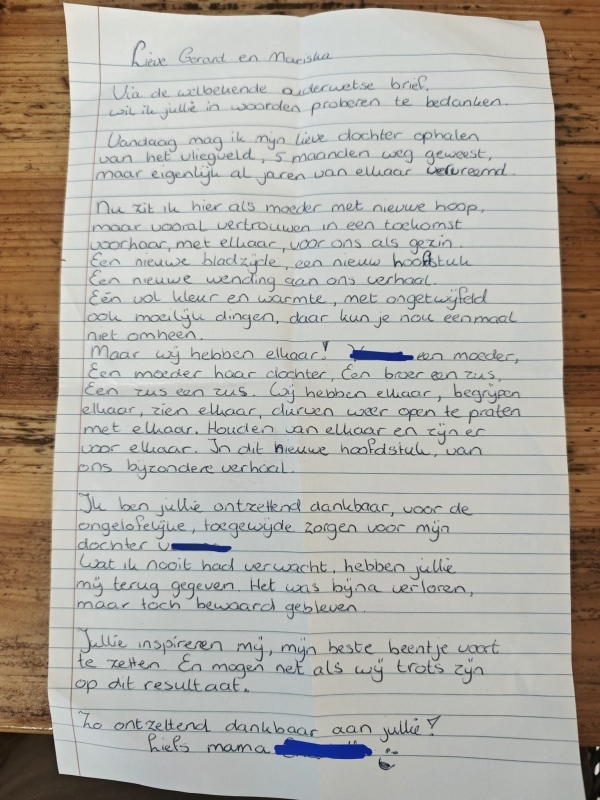 Lieve Gerard en Mariska
Via de welbekende ouderwetse brief,
wil ik jullie in woorden proberen te bedanken.
Vandaag mag ik mijn lieve dochter ophalen
van het vliegveld, 5 maanden weg geweest,
maar eigenlijk al jaren van elkaar vervreemd.
Nu zit ik hier als moeder met nieuwe hoop,
maar vooral vertrouwen in een toekomst
voorhaar, met elkaar, voor ons als gezin.
Een nieuwe bladzijde, een nieuw hoofdstuk
Een nieuwe wending aan ons verhaal.
Eén vol kleur en warmte, met ongetwijfeld
ook moeilijk dingen, daar kun je nou eenmaal
niet omheen.
Maar wij hebben elkaar! een moeder,
Een moeder haar dochter, Een broer een zus,
Een zus een zus. Wij hebben elkaar, begrijpen
elkaar, zien elkaar, durven weer open te praten
met elkaar. Houden van elkaar en zijn er
voor elkaar. In dit nieuwe hoofdstuk, van
ons bijzondere verhaal.
Ik ben jullie ontzettend dankbaar, voor de
ongelofelijke, toegewijde zorgen voor mijn
dochter
Wat ik nooit had verwacht, hebben jullie
mij terug gegeven. Het was bijna verloren,
maar toch bewaard gebleven.
Jullie inspireren mij, mijn beste beentje voort
te zetten. En mogen net als wij trots zijn
op dit resultaat.
Zo ontzettend dankbaar aan jullie!
liefs mama